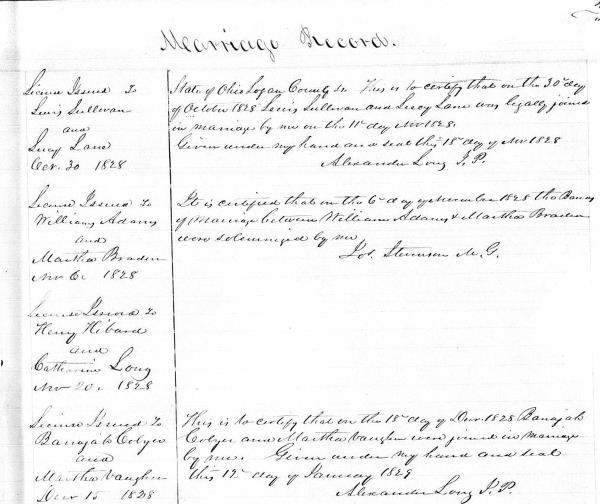 Marriage Record.
License Issued To
Lewis Sullivan
and
Lucy Lane
Oct. 30 1828
State of Ohio Logan County Ss. This is to certify that on the 30th day
of October 1828 Lewis Sullivan and Lucy Lane was legally joined
in marriage by me on the 11th day Nov 1828.
Given under my hand and seal this 18th day of Nov 1828
Alexander Long J.P.
License Issued To
William Adams
and
Martha Braden
Nov 6. 1828
It is certified that on the 6th day of November 1828 the Banns
of Marriage between William Adams & Martha Braden
were solemnized by me
Stevenson M.G.
License Issued To
Henry Hibard
and
Catharine Long
Nov 20. 1828
License Issued To
Banajah Colyer
and
Martha Vaughn
Decr 15 1828
This is to certify that on the 18th day of Decr. 1828 Banajah
Colyer and Martha Vaughn were joined in marriage
by me. Given under my hand and seal
this 12th day of January 1829
Alexander Long J.P.